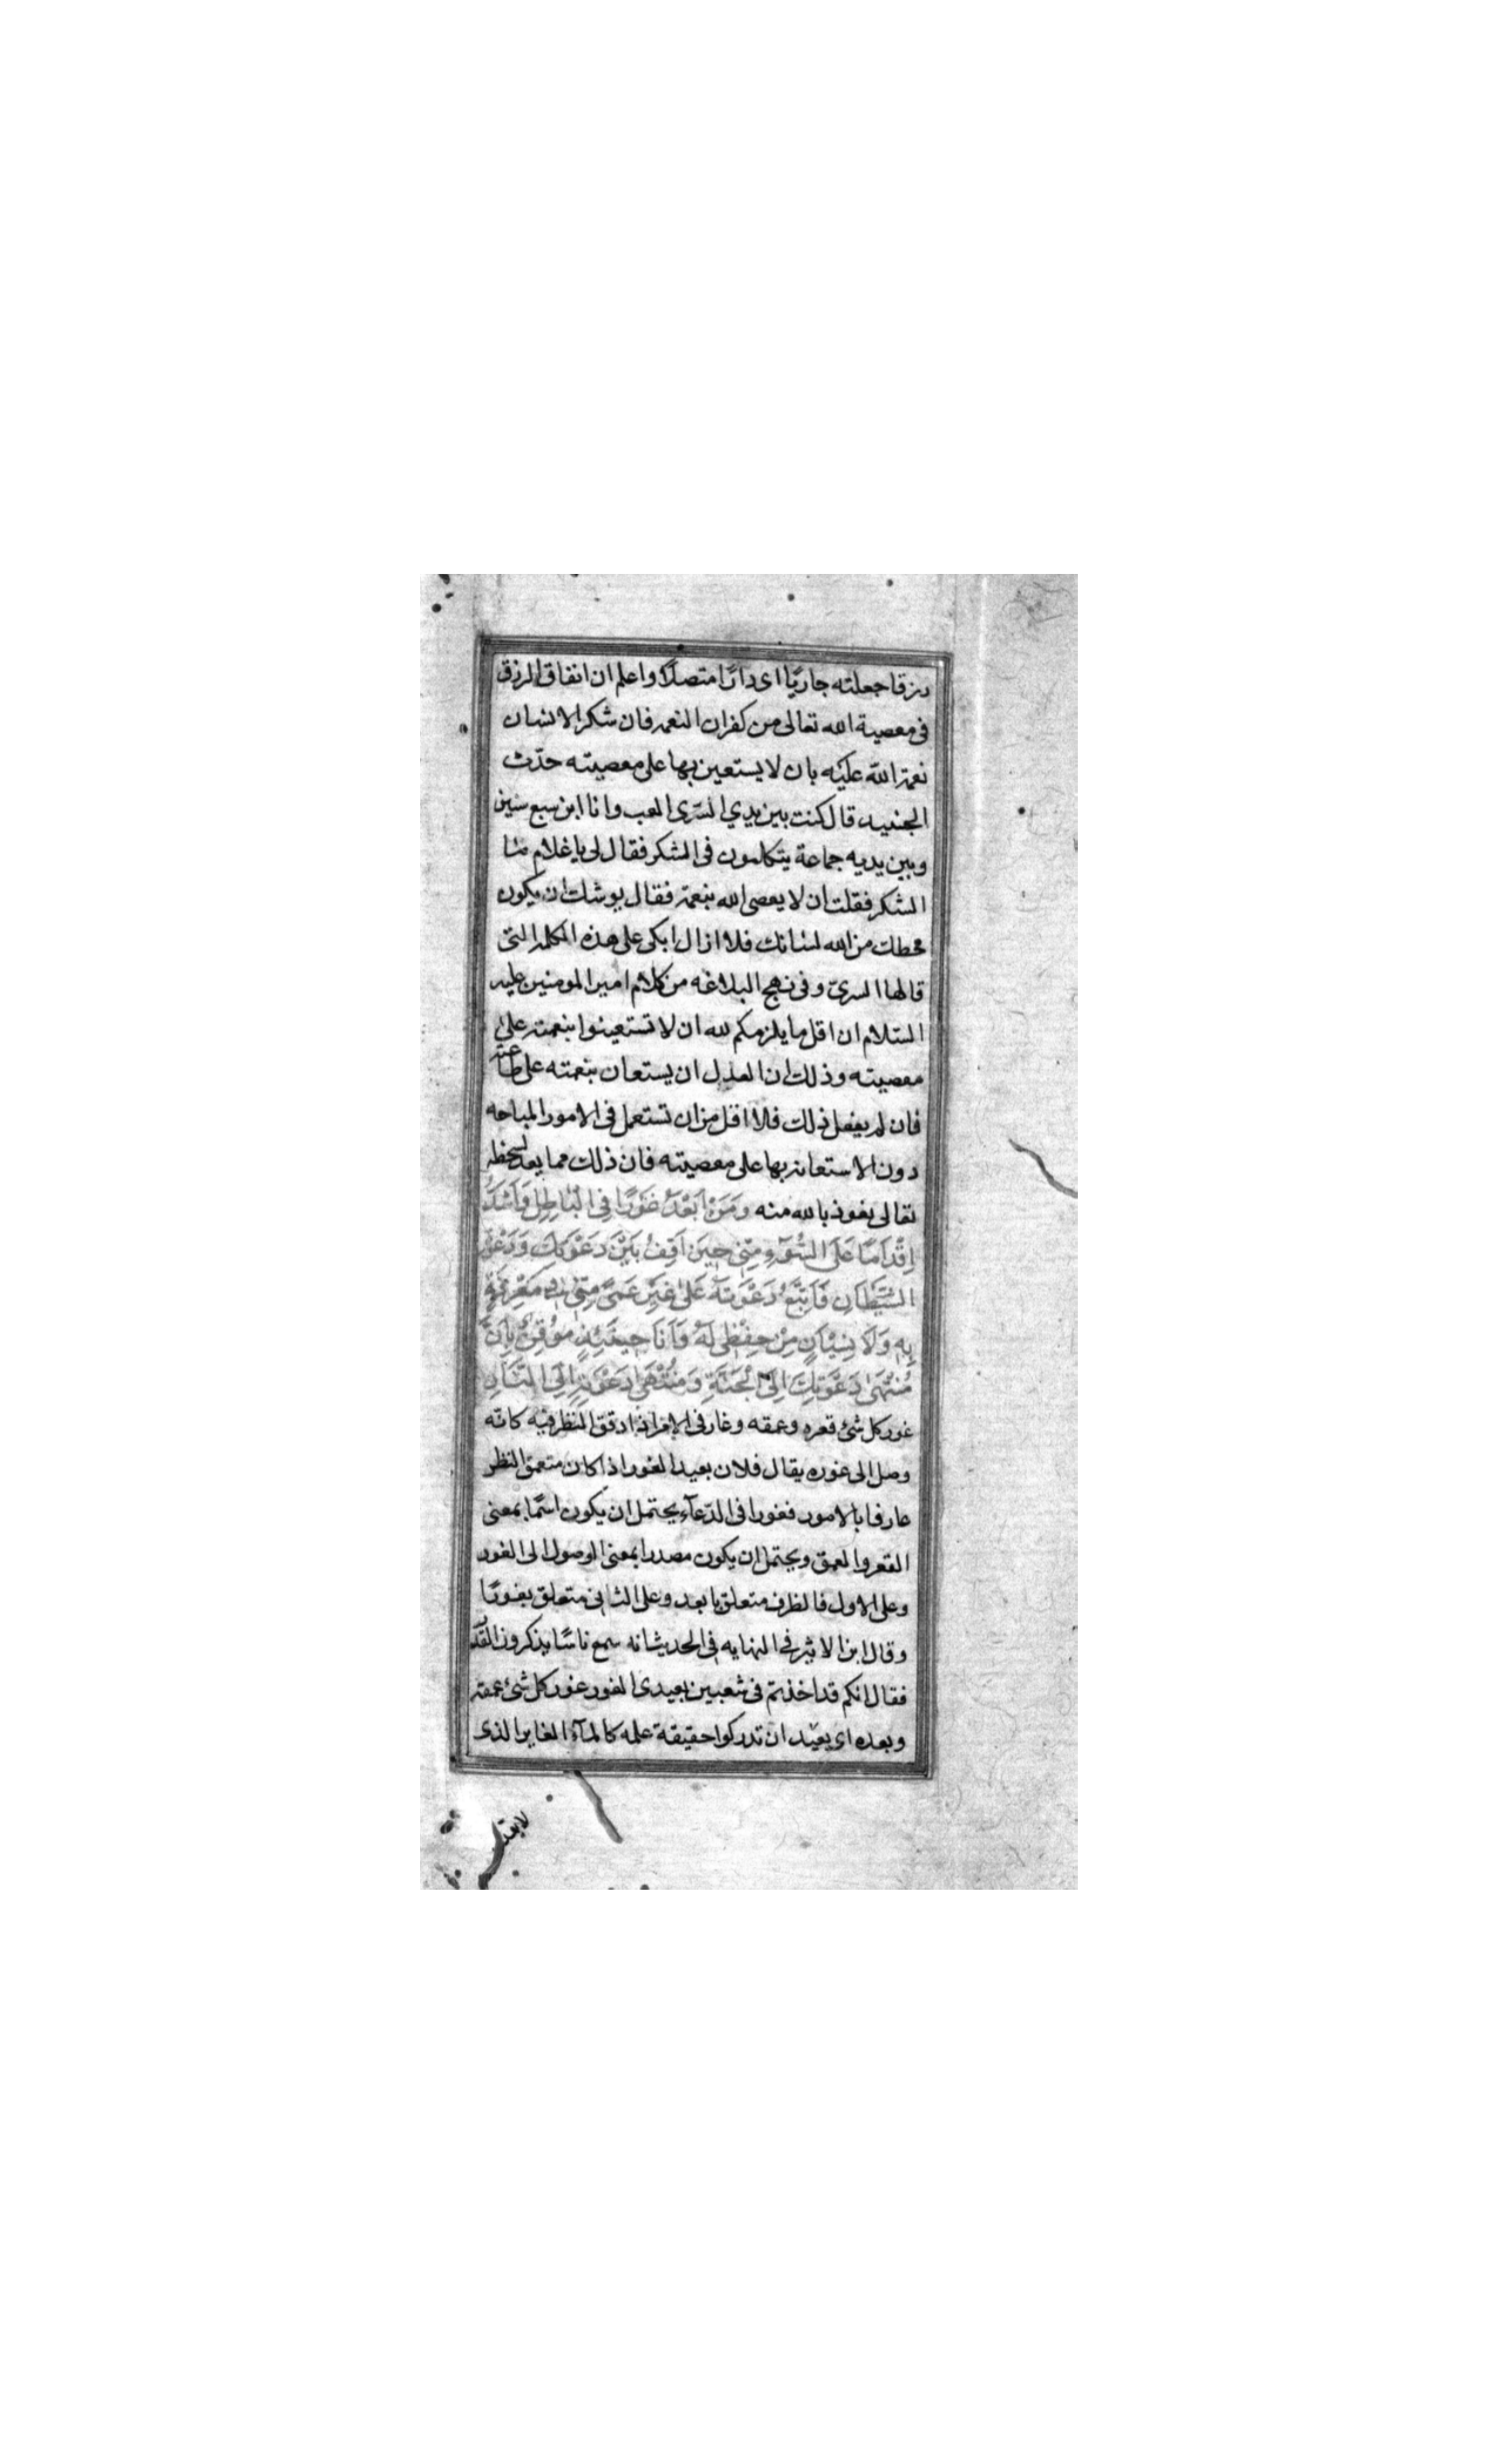 رزقا جعلته جاريًا اى دارًا متصلًا واعلم ان انفاق الرزق
فى معصية الله تعالى من كفران النعمه فان شكر الانسان
نعمة الله عليه بان لا يستعين بها على معصيته حدّث
الجنيد قال كنت بين يدي السّرى العب وانا ابن سبع سنين
وبين يديه جماعة يتكلمون فى الشكر فقال لى يا غلام ما
الشكر فقلت ان لا يعصى الله بنعمة فقال يوشك ان يكون
حظك من الله لسانك فلا ازال ابكى على هذه الكلمة التى
قالها السرىّ وفى نهج البلاغه من كلام امير المومنين عليه
السّلام ان اقل ما يلزمكم لله ان لا تستعينوا بنعمته على
معصيته وذلك ان العدل ان يستعان بنعمته على طاعته
فان لم يفعل ذلك فلا اقل من ان تستعمل فى الامور المباحه
دون الاستعانة بها على معصيته فان ذلك مما يعد لسخطه
تعالى نعوذ بالله منه وَمَنْ اَبْعَدُ غَوْرًا فِى الْبَاطِلِ وَاَشَدُّ
اِقْدَامًا عَلَى السُّوۤءِ مِنّى حِينَ اَقِفُ بَيْنَ دَعْوَتِكَ وَدَعْوَةِ
الشَّيْطَانِ فَاَتَّبِعُ دَعْوَتَهُ عَلىٰ غَيْرِ عَمىً مِنّى فى مَعْرِفَةٍ
بِهِ وَلَا نِسْيَانٍ مِنْ حِفْظى لَهُ وَاَنَا حِينَئِذٍ مُوقِنٌ بِاَنَّ
مُنْتَهىٰ دَعْوَتِكَ اِلَى الْجَنَّةِ وَمُنْتَهىٰ دَعْوَتِهِ اِلَى النَّارِ
غور كل شئ قعره وعمقه وغار فى الامر اذا دقق النظر فيه كانّه
وصل الى غوره يقال فلان بعيد الغور اذا كان متعمق النظر
عارفا بالامور فغورا فى الدّعآء يحتمل ان يكون اسمًا بمعنى
القعر والعمق ويحتمل ان يكون مصدرا بمعنى الوصول الى الغور
وعلى الاول فالظرف متعلق بابعد وعلى الثانى متعلق بغورًا
وقال ابن الاثير فى النهايه فى الحديث انه سمع ناسًا يذكرون القدر
فقال انكم قد اخذتم فى شعبين بعيدى الغور غور كل شئ عمقه
وبعده اى يبعد ان تدركوا حقيقة علمه كالمآء الغاير الذى
لا يقدر